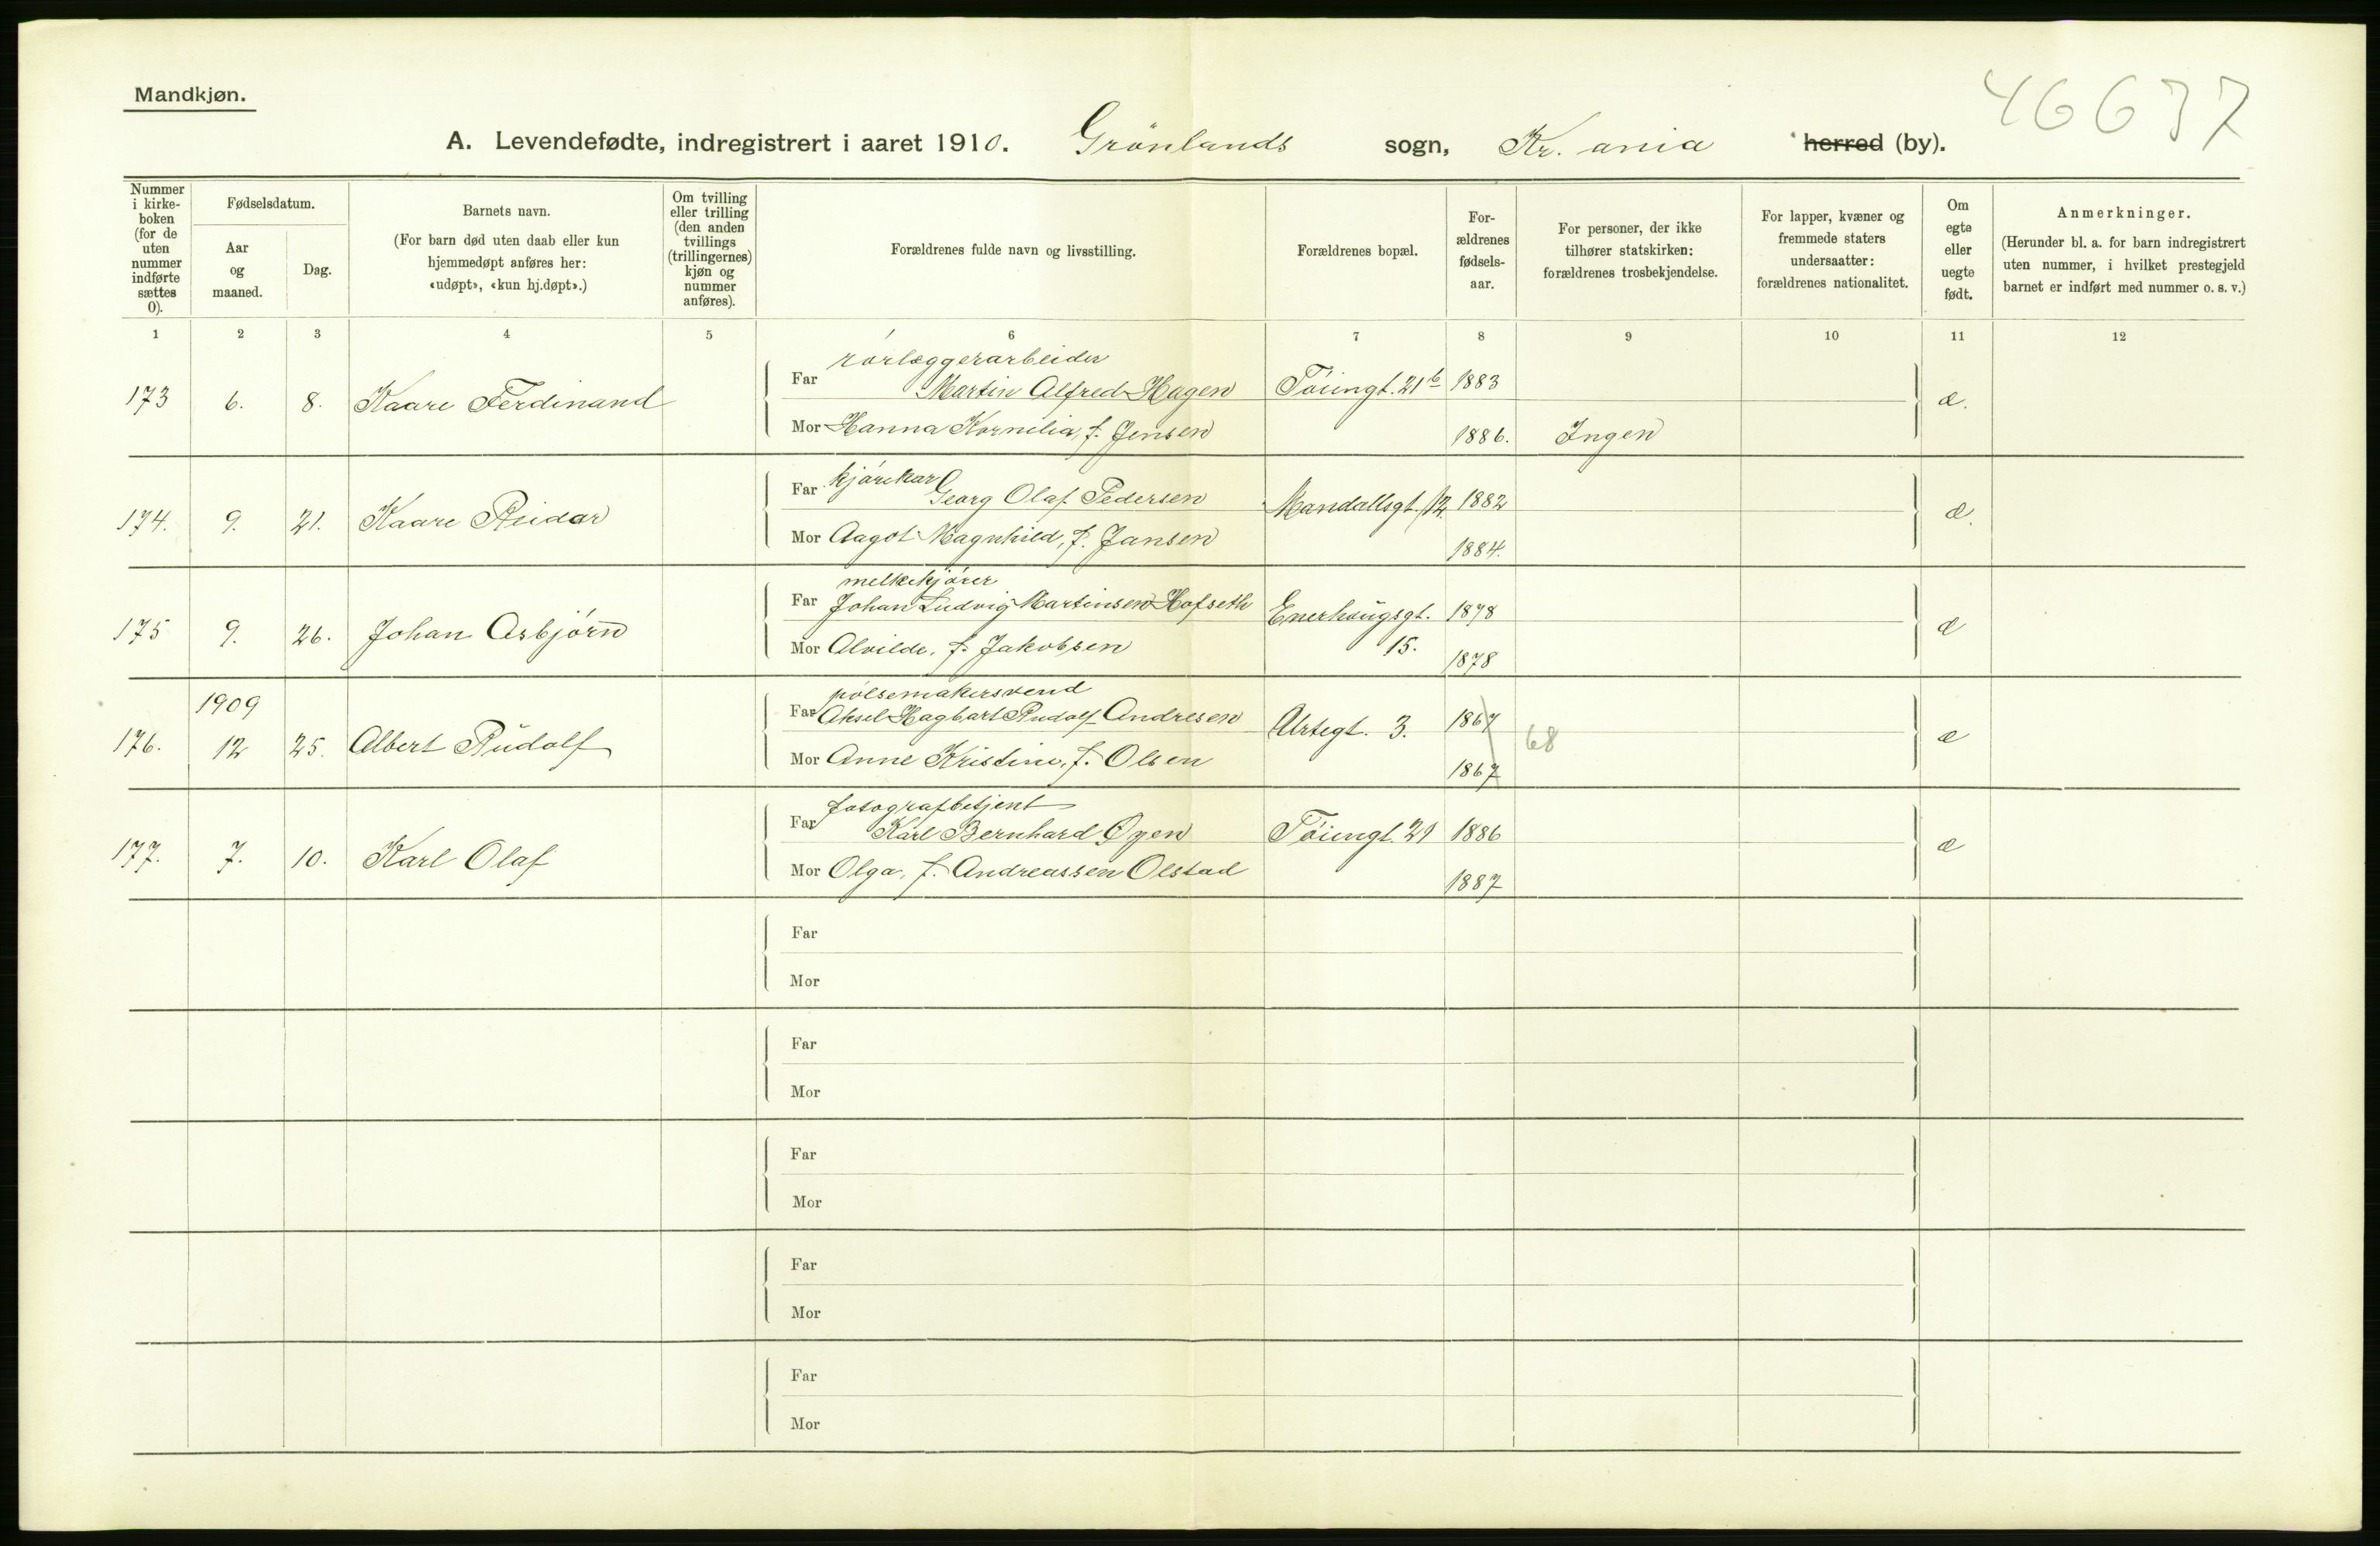 Mandkjøn.
46637
A. Levendefødte, indregistrert i aaret 1910. Grönlands sogn, Kr. ania herred (by).
Nummer i kirke-boken (for de uten nummer indførte sættes 0).
Fødselsdatum.
Aar og maaned.
Dag.
Barnets navn.
(For barn død uten daab eller kun hjemmedøpt anføres her: «udøpt», «kun hj.døpt».)
Om tvilling eller trilling (den anden tvillings (trillingernes) kjøn og nummer anføres).
Forældrenes fulde navn og livsstilling.
Forældrenes bopæl.
For-ældrenes fødsels-aar.
For personer, der ikke tilhører statskirken: forældrenes trosbekjendelse.
For lapper, kvæner og fremmede staters undersaatter: forældrenes nationalitet.
Om egte eller uegte født.
Anmerkninger.
(Herunder bl. a. for barn indregistrert uten nummer, i hvilket prestegjeld barnet er indført med nummer o. s. v.)
1 2 3 4 5 6 7 8 9 10 11 12
rörlæggerarbeider
173 6. 8. Kaare Ferdinand Far Martin Alfred Hagen Töiengt. 21b 1883 æ.
Mor Hanna Kornelia, f. Jensen 1886. Ingen
kjörekar
174. 9. 21. Kaare Reidar Far Georg Olaf Pedersen Mandallsgt. 12. 1882 æ.
Mor Aagot Magnhild, f. Jansen 1884.
melkekjörer
175 9. 26. Johan Asbjörn Far Johan Ludvig Martinsen Hofseth Enerhaugsgt. 15. 1878 æ
Mor Alvilde, f. Jakobsen 1878
pölsemakersvend
176. 1909 12 25. Albert Rudolf Far Aksel Hagbart Rudolf Andresen Urtegt. 3. 1867 68 æ
Mor Anne Kristine, f. Olsen 1867
fotografbetjent
177. 7. 10. Karl Olaf Far Karl Bernhard Öyen Töiengt. 21 1886 æ
Mor Olga, f. Andreassen Olstad 1887
Far
Mor
Far
Mor
Far
Mor
Far
Mor
Far
Mor